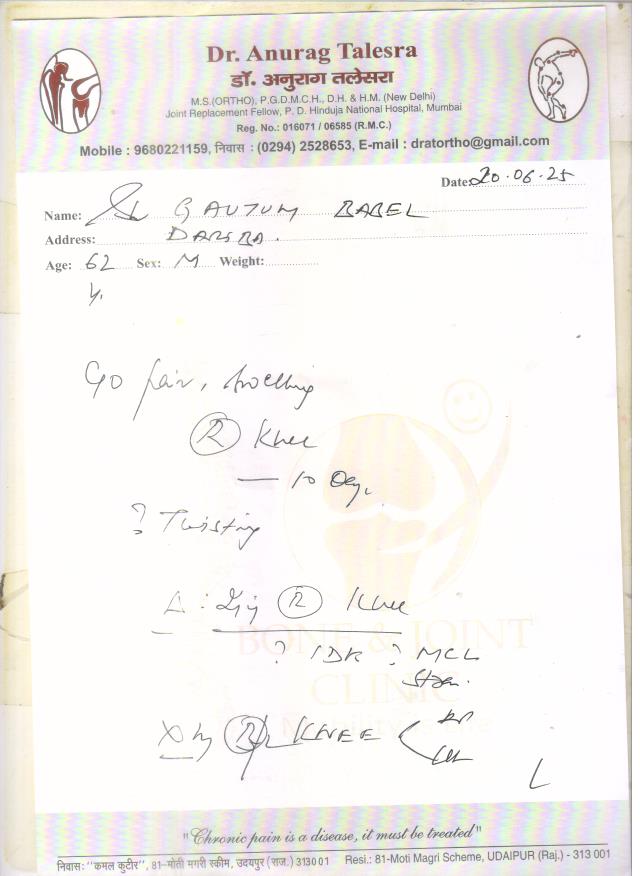 Dr. Anurag Talesra
डॉ. अनुराग तलेसरा
M.S.(ORTHO), P.G.D.M.C.H., D.H. & H.M. (New Delhi)
Joint Replacement Fellow, P. D. Hinduja National Hospital, Mumbai
Reg. No.: 016071 / 06585 (R.M.C.)
Mobile : 9680221159, निवास : (0294) 2528653, E-mail : dratortho@gmail.com
Date: 20.06.25
Name: Sh GAUTUM BABEL
Address:
Age: 62 Sex: M Weight:
y.
C/o pain, swelling
(R) Knee
— 10 Day,
? Twisting
Δ : Inj (R) Knee
? IDK ? MCL
BONE & JOINT
CLINIC
(R) KNEE < AP
"Chronic pain is a disease, it must be treated"
निवास: "कमल कुटीर", 81-मोती मगरी स्कीम, उदयपुर (राज.) 313001 Resi.: 81-Moti Magri Scheme, UDAIPUR (Raj.) - 313 001